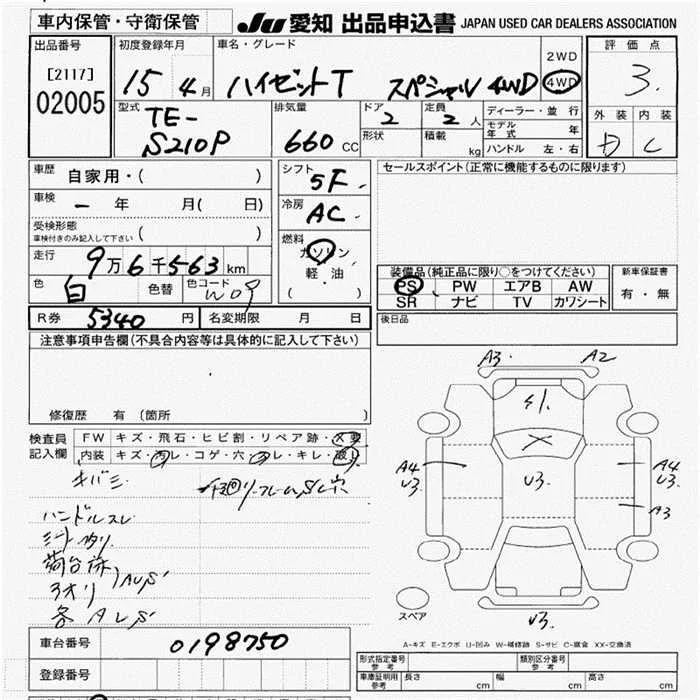 車内保管・守衛保管
JU 愛知 出品申込書 JAPAN USED CAR DEALERS ASSOCIATION
出品番号
[2117]
02005
初度登録年月
15 4 月
車名・グレード
ハイゼットT スペシャル 4WD
2WD
4WD
評価点
3.
外装 内装
D C
型式
TE-
S210P
排気量
660 CC
ドア
2
定員
2 人
形状
積載
kg
ディーラー・並行
モデル年式 年
ハンドル 左・右
車歴 自家用・( )
車検 一 年 月( 日)
受検形態
車検付きのみ記入して下さい ( )
走行 9万6千563km
色 白 色替 色コード W09
シフト
5F
冷房
AC
燃料
ガソリン
軽・油
( )
セールスポイント(正常に機能するものに限ります)
装備品(純正品に限り○をつけてください)
PS PW エアB AW
SR ナビ TV カワシート
新車保証書
有・無
R券 5340 円 名変期限 月 日
後日品
注意事項申告欄(不具合内容等は具体的に記入して下さい)
修復歴 有 (箇所 )
検査員
記入欄
FW キズ・飛石・ヒビ割・リペア跡・X要
内装 キズ・汚レ・コゲ・穴・スレ・キレ・破レ
キバミ
ハンドルスレ
シートヘタリ
荷台床
3オリ
各A
A3 A2
X
A4 U3 U3 A4 U3
A3
U3
スペア
A-キズ E-エクボ U-凹み W-補修跡 S-サビ C-腐食 XX-交換済
車台番号 0198750
登録番号
形式指定番号
参考
類別区分番号
参考
車庫証明用
参考
長さ cm 幅 cm 高さ cm